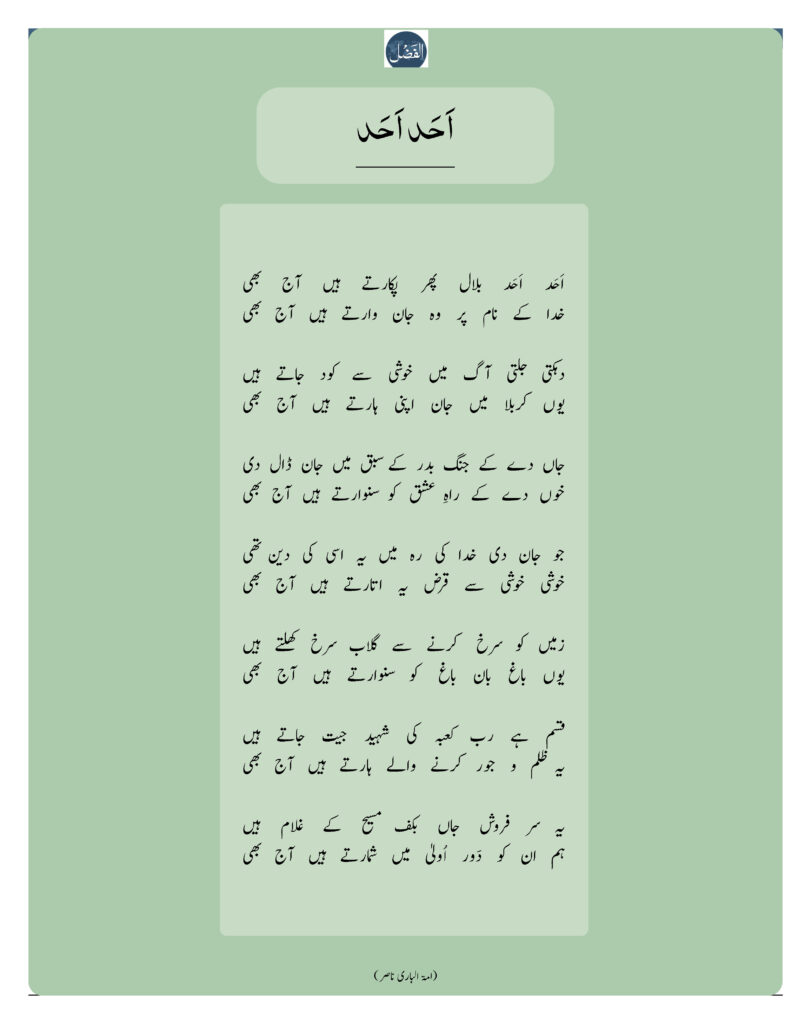 الفَضْل
اَحَد اَحَد
اَحَد اَحَد بلال پھر پکارتے ہیں آج بھی
خدا کے نام پر وہ جان وارتے ہیں آج بھی
دہکتی جلتی آگ میں خوشی سے کود جاتے ہیں
یوں کربلا میں جان اپنی ہارتے ہیں آج بھی
جاں دے کے جنگ بدر کے سبق میں جان ڈال دی
خوں دے کے راہِ عشق کو سنوارتے ہیں آج بھی
جو جان دی خدا کی رہ میں یہ اسی کی دین تھی
خوشی خوشی سے قرض یہ اتارتے ہیں آج بھی
زمیں کو سرخ کرنے سے گلاب سرخ کھلتے ہیں
یوں باغ بان باغ کو سنوارتے ہیں آج بھی
قسم ہے رب کعبہ کی شہید جیت جاتے ہیں
یہ ظلم و جور کرنے والے ہارتے ہیں آج بھی
یہ سر فروش جاں بکف مسیح کے غلام ہیں
ہم ان کو دَور اُولیٰ میں شمارتے ہیں آج بھی
(امۃ الباری ناصر)